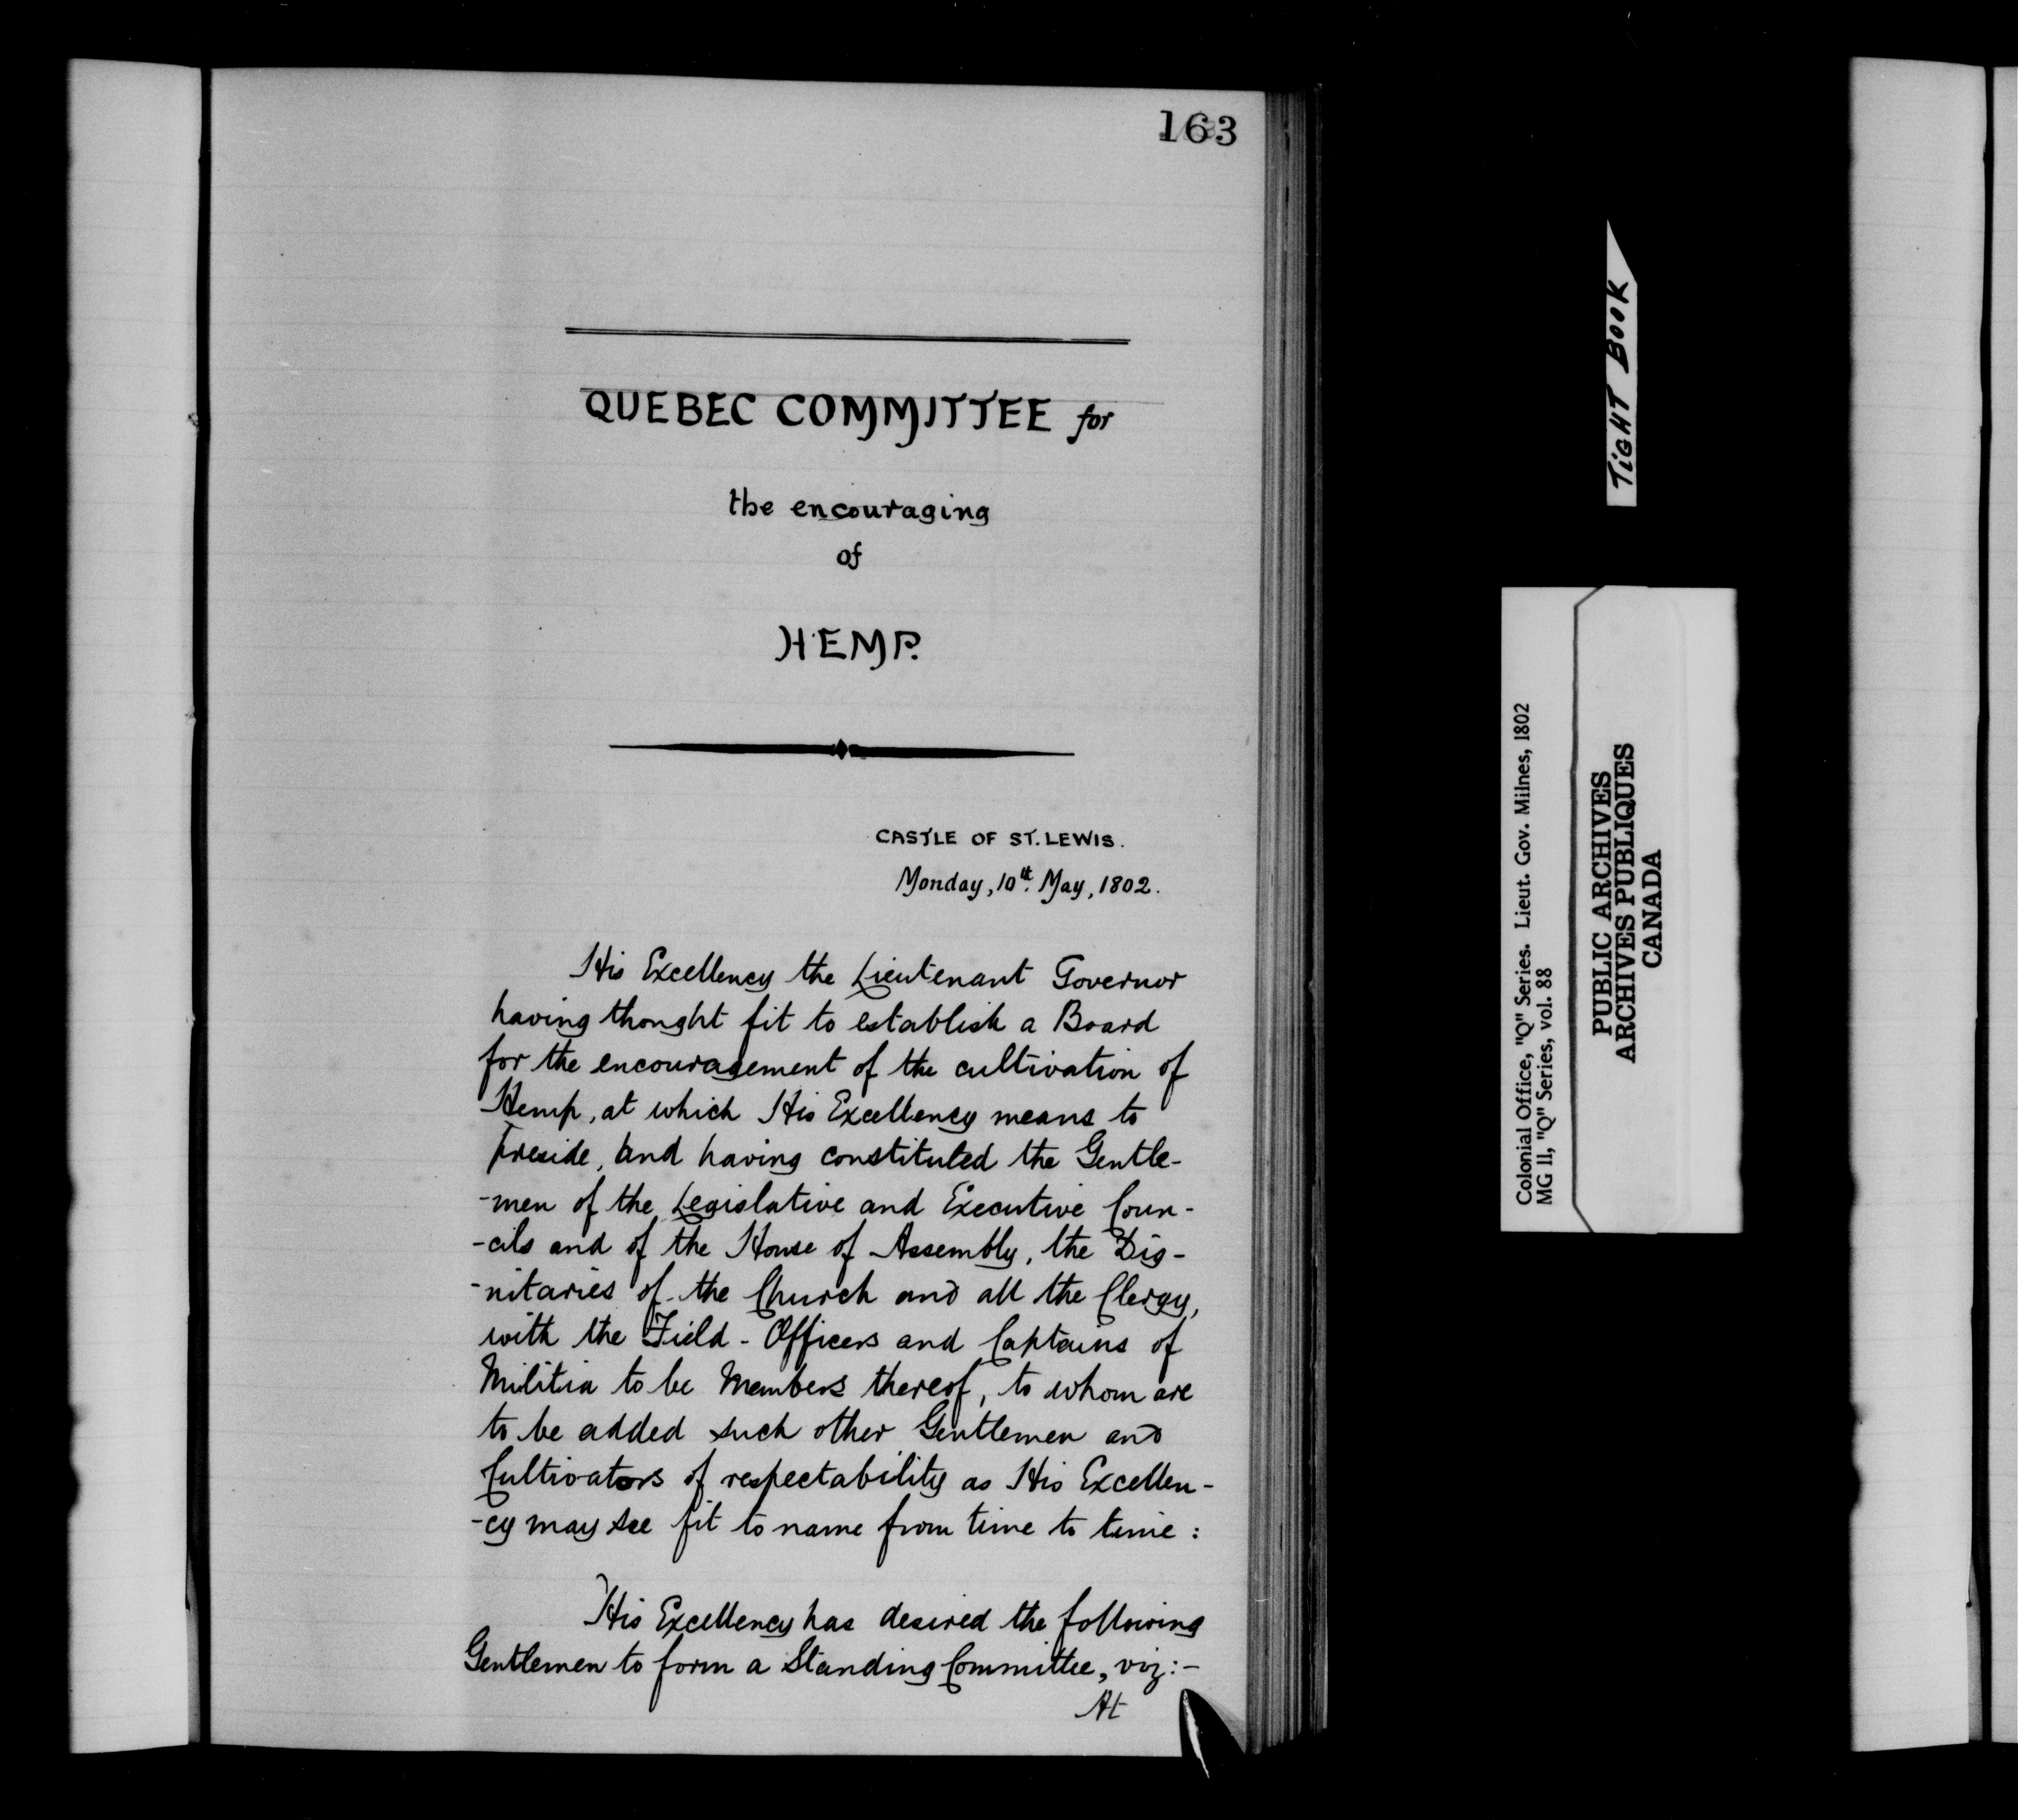 163
QUEBEC COMMITTEE for
the encouraging
of
HEMP.
CASTLE OF ST. LEWIS.
Monday, 10th. May, 1802.
His Excellency the Lieutenant Governor
having thought fit to establish a Board
for the encouragement of the cultivation of
Hemp, at which His Excellency means to
preside, and having constituted the Gentle-
-men of the Legislative and Executive Coun-
-cils and of the House of Assembly, the Dig-
-nitaries of the Church and all the Clergy,
with the Field-Officers and Captains of
Militia to be Members thereof, to whom are
to be added such other Gentlemen and
Cultivators of respectability as His Excellen-
-cy may see fit to name from time to time:
His Excellency has desired the following
Gentlemen to form a Standing Committee, viz:-
At
TIGHT BOOK
Colonial Office, "Q" Series. Lieut. Gov. Milnes, 1802
MG 11, "Q" Series, vol. 88
PUBLIC ARCHIVES
ARCHIVES PUBLIQUES
CANADA